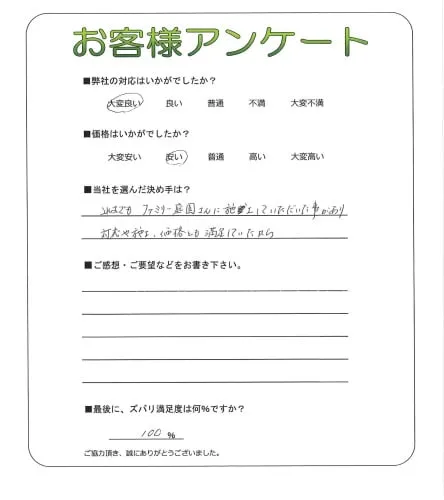 お客様アンケート
■弊社の対応はいかがでしたか?
大変良い 良い 普通 不満 大変不満
■価格はいかがでしたか?
大変安い 安い 普通 高い 大変高い
■当社を選んだ決め手は?
これまでも ファミリー庭園さんに施工していただいた事があり
対応や施工、価格にも満足していたから
■ご感想・ご要望などをお書き下さい。
■最後に、ズバリ満足度は何%ですか?
100 %
ご協力頂き、誠にありがとうございました。